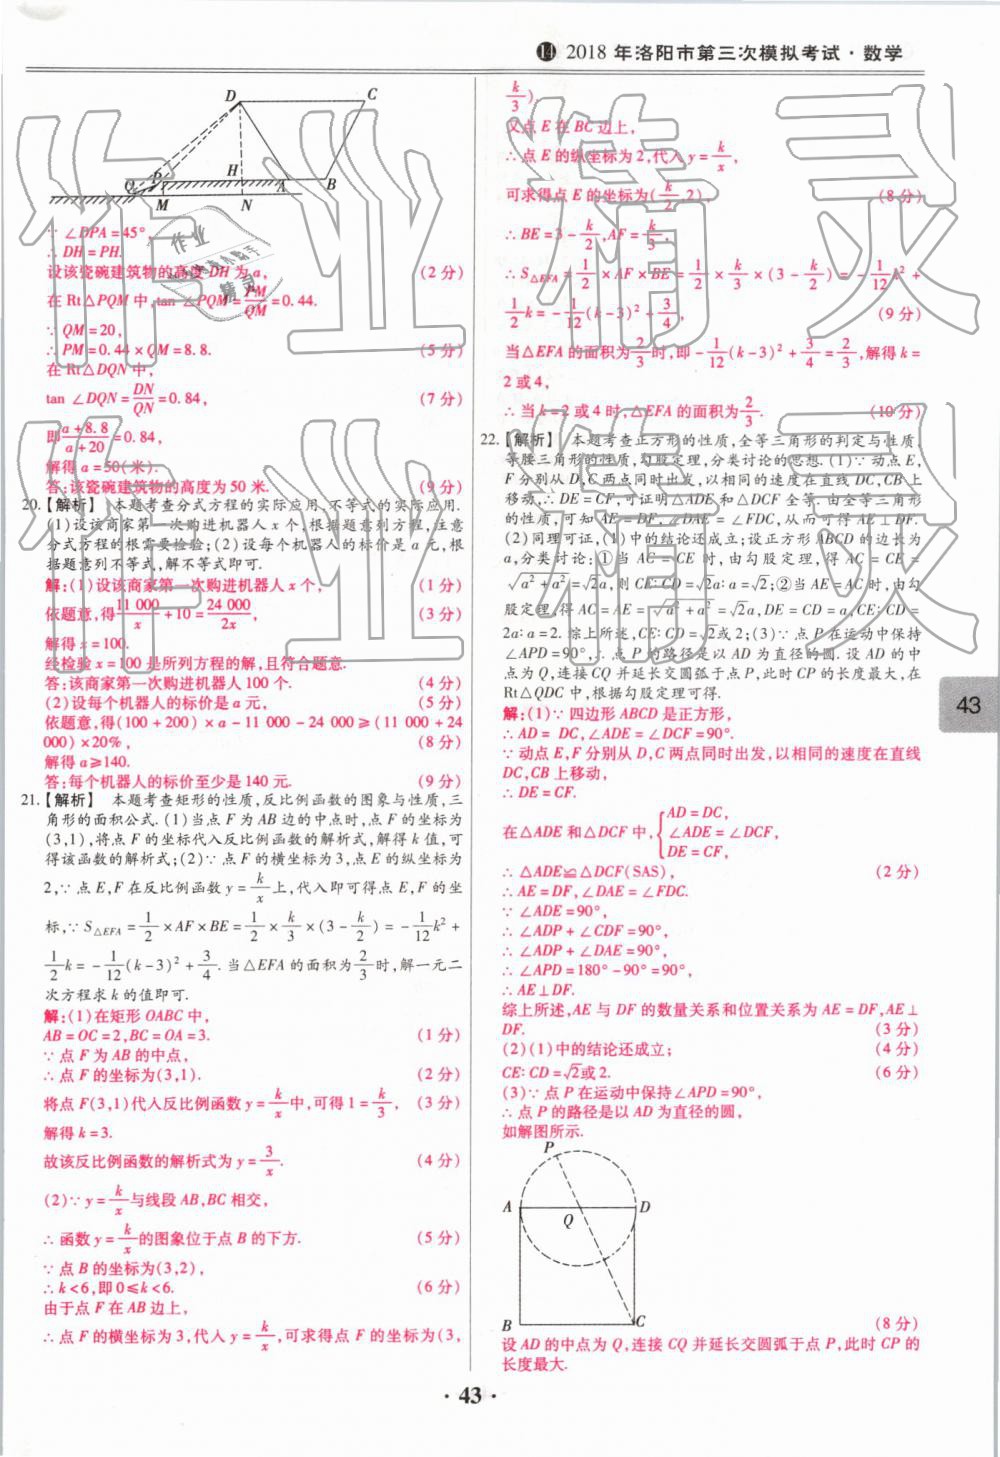 14 2018 年洛阳市第三次模拟考试·数学
D
C
H
Q
P
A
B
M
N
∵ ∠DPA = 45°
∴ DH = PH.
设该瓷碗建筑物的高度 DH 为 a, (2 分)
在 Rt△PQM 中, tan ∠PQM = PM/QM = 0.44.
∵ QM = 20,
∴ PM = 0.44 × QM = 8.8. (5 分)
在 Rt△DQN 中,
tan ∠DQN = DN/QN = 0.84, (7 分)
即 (a + 8.8)/(a + 20) = 0.84,
解得 a = 50(米).
答:该瓷碗建筑物的高度为 50 米. (9 分)
20. 【解析】 本题考查分式方程的实际应用、不等式的实际应用.
(1)设该商家第一次购进机器人 x 个,根据题意列方程,注意
分式方程的根需要检验;(2)设每个机器人的标价是 a 元,根
据题意列不等式,解不等式即可.
解:(1)设该商家第一次购进机器人 x 个, (1 分)
依题意,得 11 000/x + 10 = 24 000/2x, (3 分)
解得 x = 100.
经检验 x = 100 是所列方程的解,且符合题意.
答:该商家第一次购进机器人 100 个. (4 分)
(2)设每个机器人的标价是 a 元, (5 分)
依题意,得(100 + 200) × a − 11 000 − 24 000 ≥ (11 000 + 24
000) × 20%, (8 分)
解得 a ≥ 140.
答:每个机器人的标价至少是 140 元. (9 分)
21. 【解析】 本题考查矩形的性质,反比例函数的图象与性质,三
角形的面积公式. (1)当点 F 为 AB 边的中点时,点 F 的坐标为
(3,1),将点 F 的坐标代入反比例函数的解析式,解得 k 值,可
得该函数的解析式;(2)∵ 点 F 的横坐标为 3,点 E 的纵坐标为
2,∵ 点 E,F 在反比例函数 y = k/x 上,代入即可得点 E,F 的坐
标,∵ S△EFA = 1/2 × AF × BE = 1/2 × k/3 × (3 − k/2) = − 1/12 k² +
1/2 k = − 1/12 (k − 3)² + 3/4. 当△EFA 的面积为 2/3 时,解一元二
次方程求 k 的值即可.
解:(1)在矩形 OABC 中,
AB = OC = 2,BC = OA = 3. (1 分)
∵ 点 F 为 AB 的中点,
∴ 点 F 的坐标为(3,1). (2 分)
将点 F(3,1)代入反比例函数 y = k/x 中,可得 1 = k/3, (3 分)
解得 k = 3.
故该反比例函数的解析式为 y = 3/x. (4 分)
(2)∵ y = k/x 与线段 AB,BC 相交,
∴ 函数 y = k/x 的图象位于点 B 的下方. (5 分)
∵ 点 B 的坐标为(3,2),
∴ k < 6,即 0 ≤ k < 6. (6 分)
由于点 F 在 AB 边上,
∴ 点 F 的横坐标为 3,代入 y = k/x,可求得点 F 的坐标为(3,
k/3).
又点 E 在 BC 边上,
∴ 点 E 的纵坐标为 2,代入 y = k/x,
可求得点 E 的坐标为(k/2,2), (8 分)
∴ BE = 3 − k/2,AF = k/3,
∴ S△EFA = 1/2 × AF × BE = 1/2 × k/3 × (3 − k/2) = − 1/12 k² +
1/2 k = − 1/12 (k − 3)² + 3/4, (9 分)
当△EFA 的面积为 2/3 时,即 − 1/12 (k − 3)² + 3/4 = 2/3,解得 k =
2 或 4,
∴ 当 k = 2 或 4 时,△EFA 的面积为 2/3. (10 分)
22. 【解析】 本题考查正方形的性质,全等三角形的判定与性质,
等腰三角形的性质,勾股定理,分类讨论的思想. (1)∵ 动点 E,
F 分别从 D,C 两点同时出发,以相同的速度在直线 DC,CB 上
移动,∴ DE = CF,可证明△ADE 和△DCF 全等. 由全等三角形
的性质,可知 AE = DF,∠DAE = ∠FDC,从而可得 AE⊥DF.
(2)同理可证,(1)中的结论还成立;设正方形 ABCD 的边长为
a,分类讨论:①当 AC = CE 时,由勾股定理,得 AC = CE =
√(a² + a²) = √2a,则 CE∶CD = √2a∶a = √2;②当 AE = AC 时,由勾
股定理,得 AC = AE = √(a² + a²) = √2a,DE = CD = a,CE∶CD =
2a∶a = 2. 综上所述,CE∶CD = √2或 2;(3)∵ 点 P 在运动中保持
∠APD = 90°,∴ 点 P 的路径是以 AD 为直径的圆. 设 AD 的中
点为 Q,连接 CQ 并延长交圆弧于点 P,此时 CP 的长度最大,在
Rt△QDC 中,根据勾股定理可得.
解:(1)∵ 四边形 ABCD 是正方形,
∴ AD = DC,∠ADE = ∠DCF = 90°.
∵ 动点 E,F 分别从 D,C 两点同时出发,以相同的速度在直线
DC,CB 上移动,
∴ DE = CF.
在△ADE 和△DCF 中, { AD = DC,
∠ADE = ∠DCF,
DE = CF,
∴ △ADE≌△DCF(SAS), (2 分)
∴ AE = DF,∠DAE = ∠FDC.
∵ ∠ADE = 90°,
∴ ∠ADP + ∠CDF = 90°,
∴ ∠ADP + ∠DAE = 90°,
∴ ∠APD = 180° − 90° = 90°,
∴ AE⊥DF.
综上所述,AE 与 DF 的数量关系和位置关系为 AE = DF,AE⊥
DF. (3 分)
(2)(1)中的结论还成立; (4 分)
CE∶CD = √2或 2. (6 分)
(3)∵ 点 P 在运动中保持∠APD = 90°,
∴ 点 P 的路径是以 AD 为直径的圆,
如解图所示.
P
A
Q
D
B
C
(8 分)
设 AD 的中点为 Q,连接 CQ 并延长交圆弧于点 P,此时 CP 的
长度最大.
43
· 43 ·
作业精灵
作业精灵